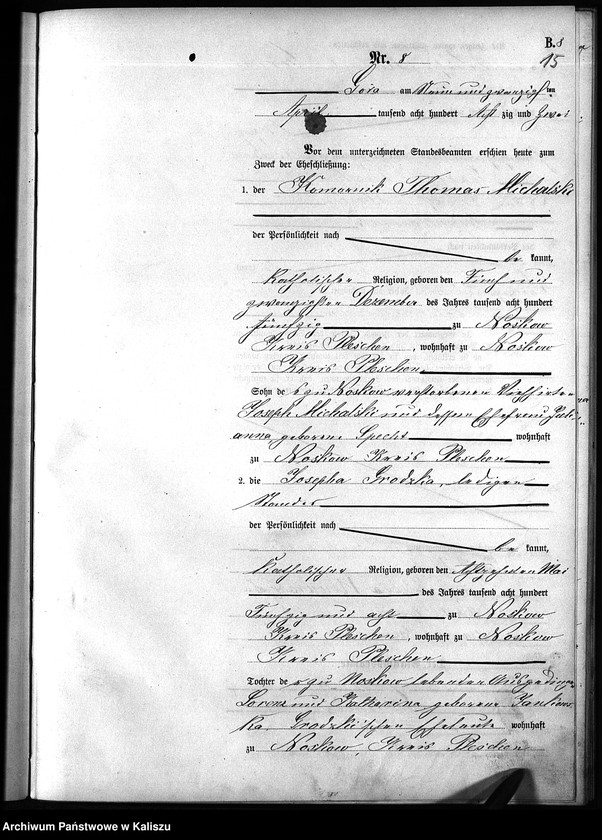 B. 8
15
Nr. 8
Gora am Neun und zwanzigsten
April tausend acht hundert Acht zig und Zwei
Vor dem unterzeichneten Standesbeamten erschien heute zum
Zweck der Eheschließung:
1. der Komornik Thomas Michalski
der Persönlichkeit nach
be kannt,
katholischer Religion, geboren den Fünf und
zwanzigsten Dezember des Jahres tausend acht hundert
fünfzig zu Noskow
Kreis Pleschen, wohnhaft zu Noskow
Kreis Pleschen
Sohn des zu Noskow verstorbenen
Joseph Michalski und dessen Ehefrau Juli-
anna geborene Specht wohnhaft
zu Noskow Kreis Pleschen
2. die Josepha Grodzka, ledigen
Standes
der Persönlichkeit nach
be kannt,
katholischer Religion, geboren den Achtzehnten Mai
des Jahres tausend acht hundert
Fünfzig und acht zu Noskow
Kreis Pleschen, wohnhaft zu Noskow
Kreis Pleschen
Tochter der zu Noskow lebenden Ausgedinger
Lorenz und Katharina geborene
Grodzki'schen Eheleute wohnhaft
zu Noskow, Kreis Pleschen
Archiwum Państwowe w Kaliszu